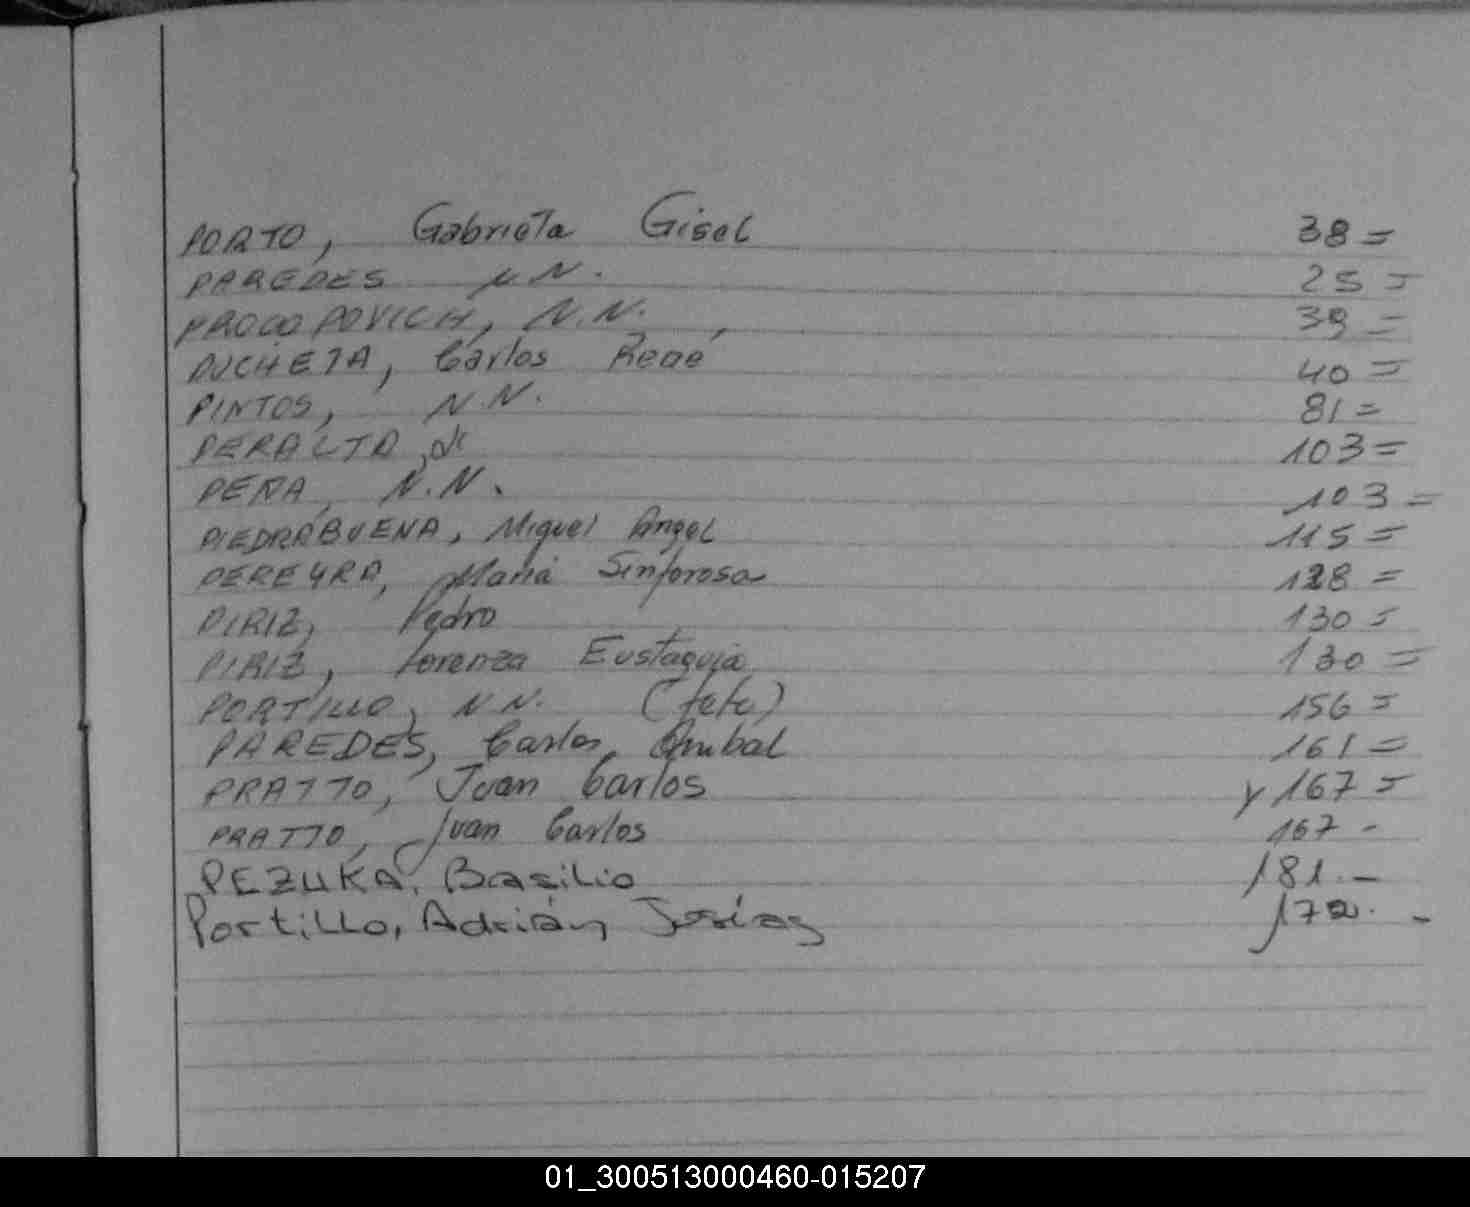 PORTO, Gabriela Gisel 38=
PAREDES N.N. 25=
PROCOPOVICH, N.N. 39=
PUCHETA, Carlos René 40=
PINTOS, N.N. 81=
PERALTA, 103=
PEÑA, N.N. 103=
PIEDRABUENA, Miguel Angel 115=
PEREYRA, María Sinforosa 128=
PIRIZ, Pedro 130=
PIRIZ, Lorenza Eustaquia 130=
PORTILLO, N.N. 156=
PAREDES, Carlos Anibal 161=
PRATTO, Juan Carlos y 167=
PRATTO, Juan Carlos 167-
PEZUKA, Basilio 181.-
Portillo, Adrián Josías 172.-
01_300513000460-015207